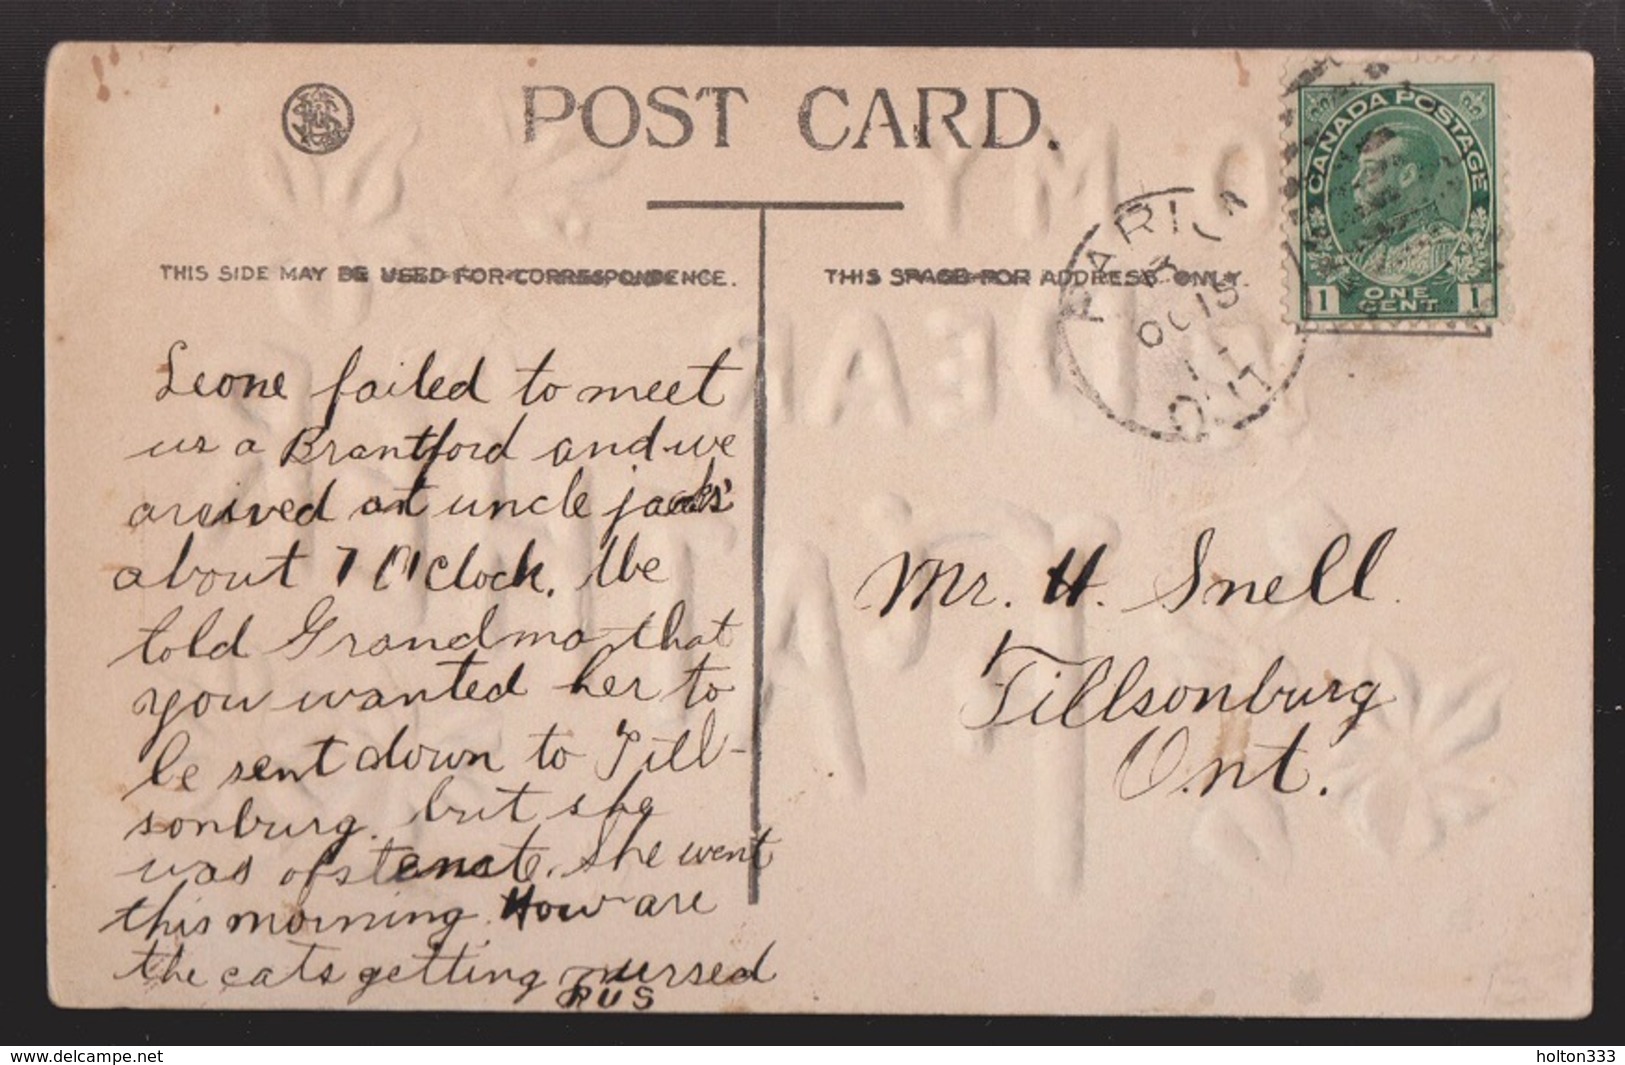 POST CARD.
THIS SIDE MAY BE USED FOR CORRESPONDENCE.
THIS SPACE FOR ADDRESS ONLY.
CANADA POSTAGE
1 ONE CENT 1
OC 15
ONT
Leone failed to meet
us a Brantford and we
arrived at uncle jacks'
about 7 O'clock. We
told Grandma that
you wanted her to
be sent down to Till-
sonburg. but she
was obstenate. She went
this morning. How are
the cats getting nursed
RUS
Mr. H. Snell.
Tillsonburg
Ont.
TO MY
DEAR
www.delcampe.net
holton333